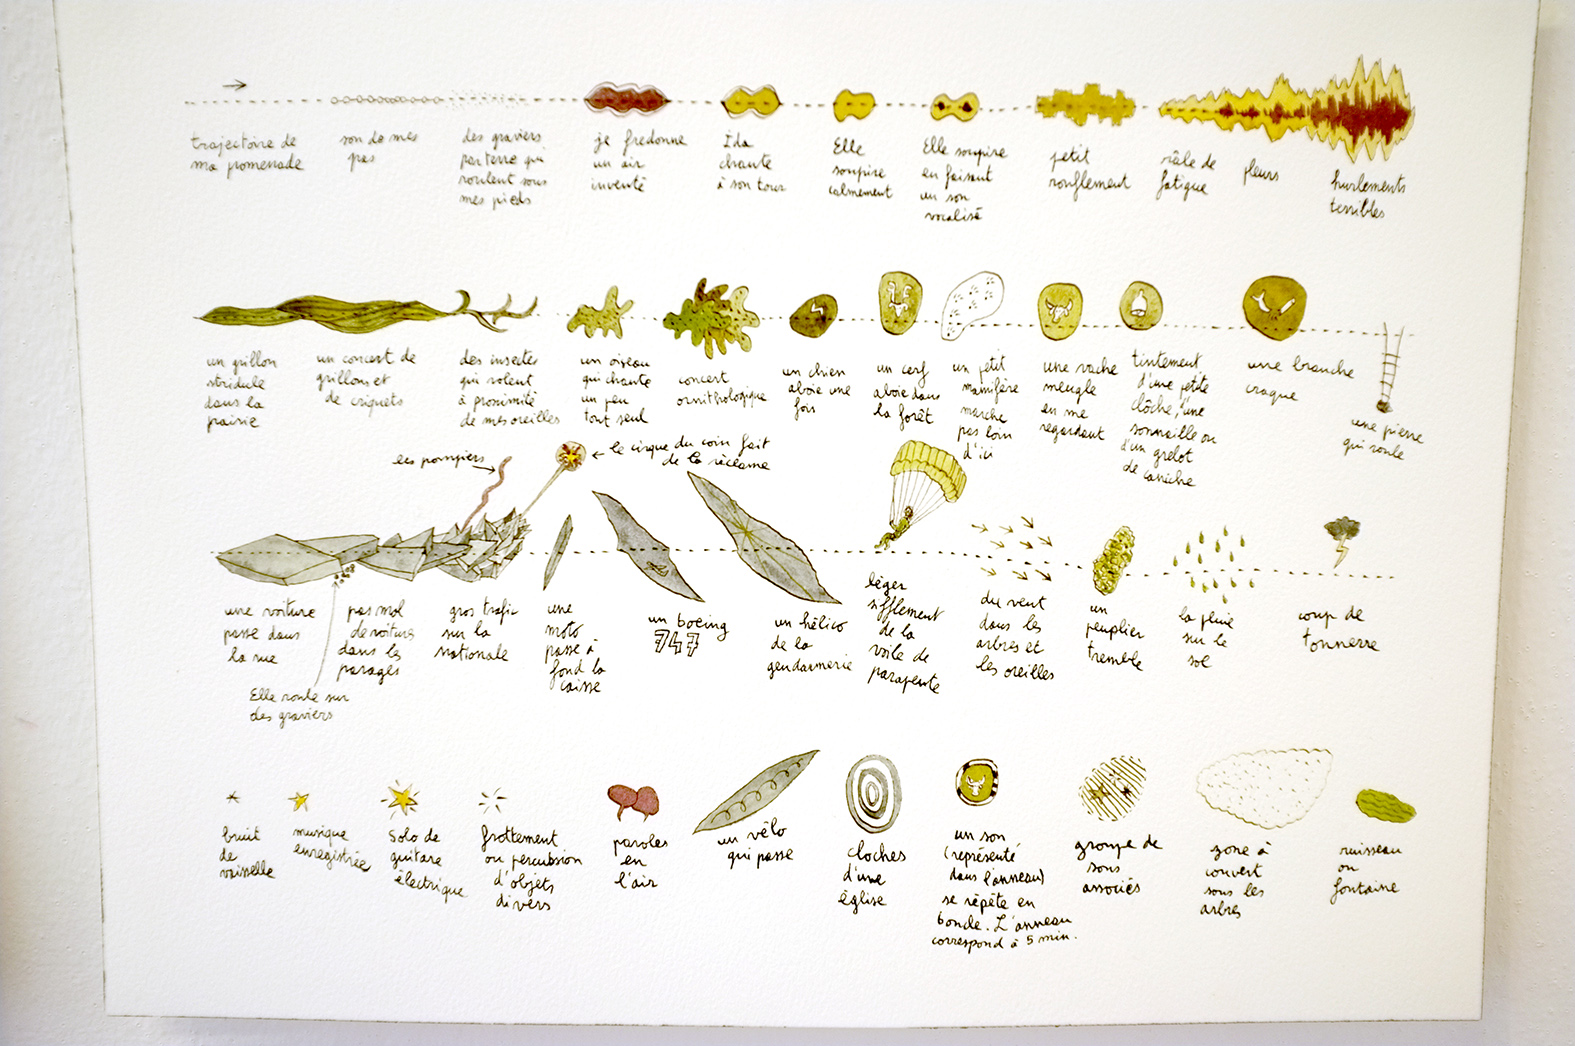 trajectoire de
ma promenade
son de mes
pas
des graviers
par terre qui
roulent sous
mes pieds
je fredonne
un air
inventé
Ida
chante
à son tour
Elle
soupire
calmement
Elle soupire
en faisant
un son
vocalisé
petit
ronflement
râle de
fatigue
pleurs
hurlements
terribles
un grillon
stridule
dans la
prairie
un concert de
grillons et
de criquets
des insectes
qui volent
à proximité
de mes oreilles
un oiseau
qui chante
un peu
tout seul
concert
ornithologique
un chien
aboie une
fois
un cerf
aboie dans
la forêt
un petit
mammifère
marche
pas loin
d'ici
une vache
meugle
en me
regardant
tintement
d'une petite
clôche, d'une
sonnaille ou
d'un grelot
de caniche
une branche
craque
une pierre
qui roule
les pompiers
le cirque du coin fait
de la réclame
une voiture
passe dans
la rue
Elle roule sur
des graviers
pas mal
de voitures
dans les
parages
gros trafic
sur la
nationale
une
moto
passe à
fond la
caisse
un boeing
747
un hélico
de la
gendarmerie
léger
sifflement
de la
voile de
parapente
du vent
dans les
arbres et
les oreilles
un
peuplier
tremble
la pluie
sur le
sol
coup de
tonnerre
bruit
de
vaisselle
musique
enregistrée
Solo de
guitare
électrique
frottement
ou percussion
d'objets
divers
paroles
en
l'air
un vélo
qui passe
cloches
d'une
église
un son
(représenté
dans l'anneau)
se répète en
boucle. L'anneau
correspond à 5 min.
groupe de
sons
associés
zone à
couvert
sous les
arbres
ruisseau
ou
fontaine